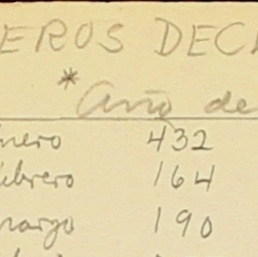 EROS DEC
* Año de
nero 432
ebrero 164
marzo 190